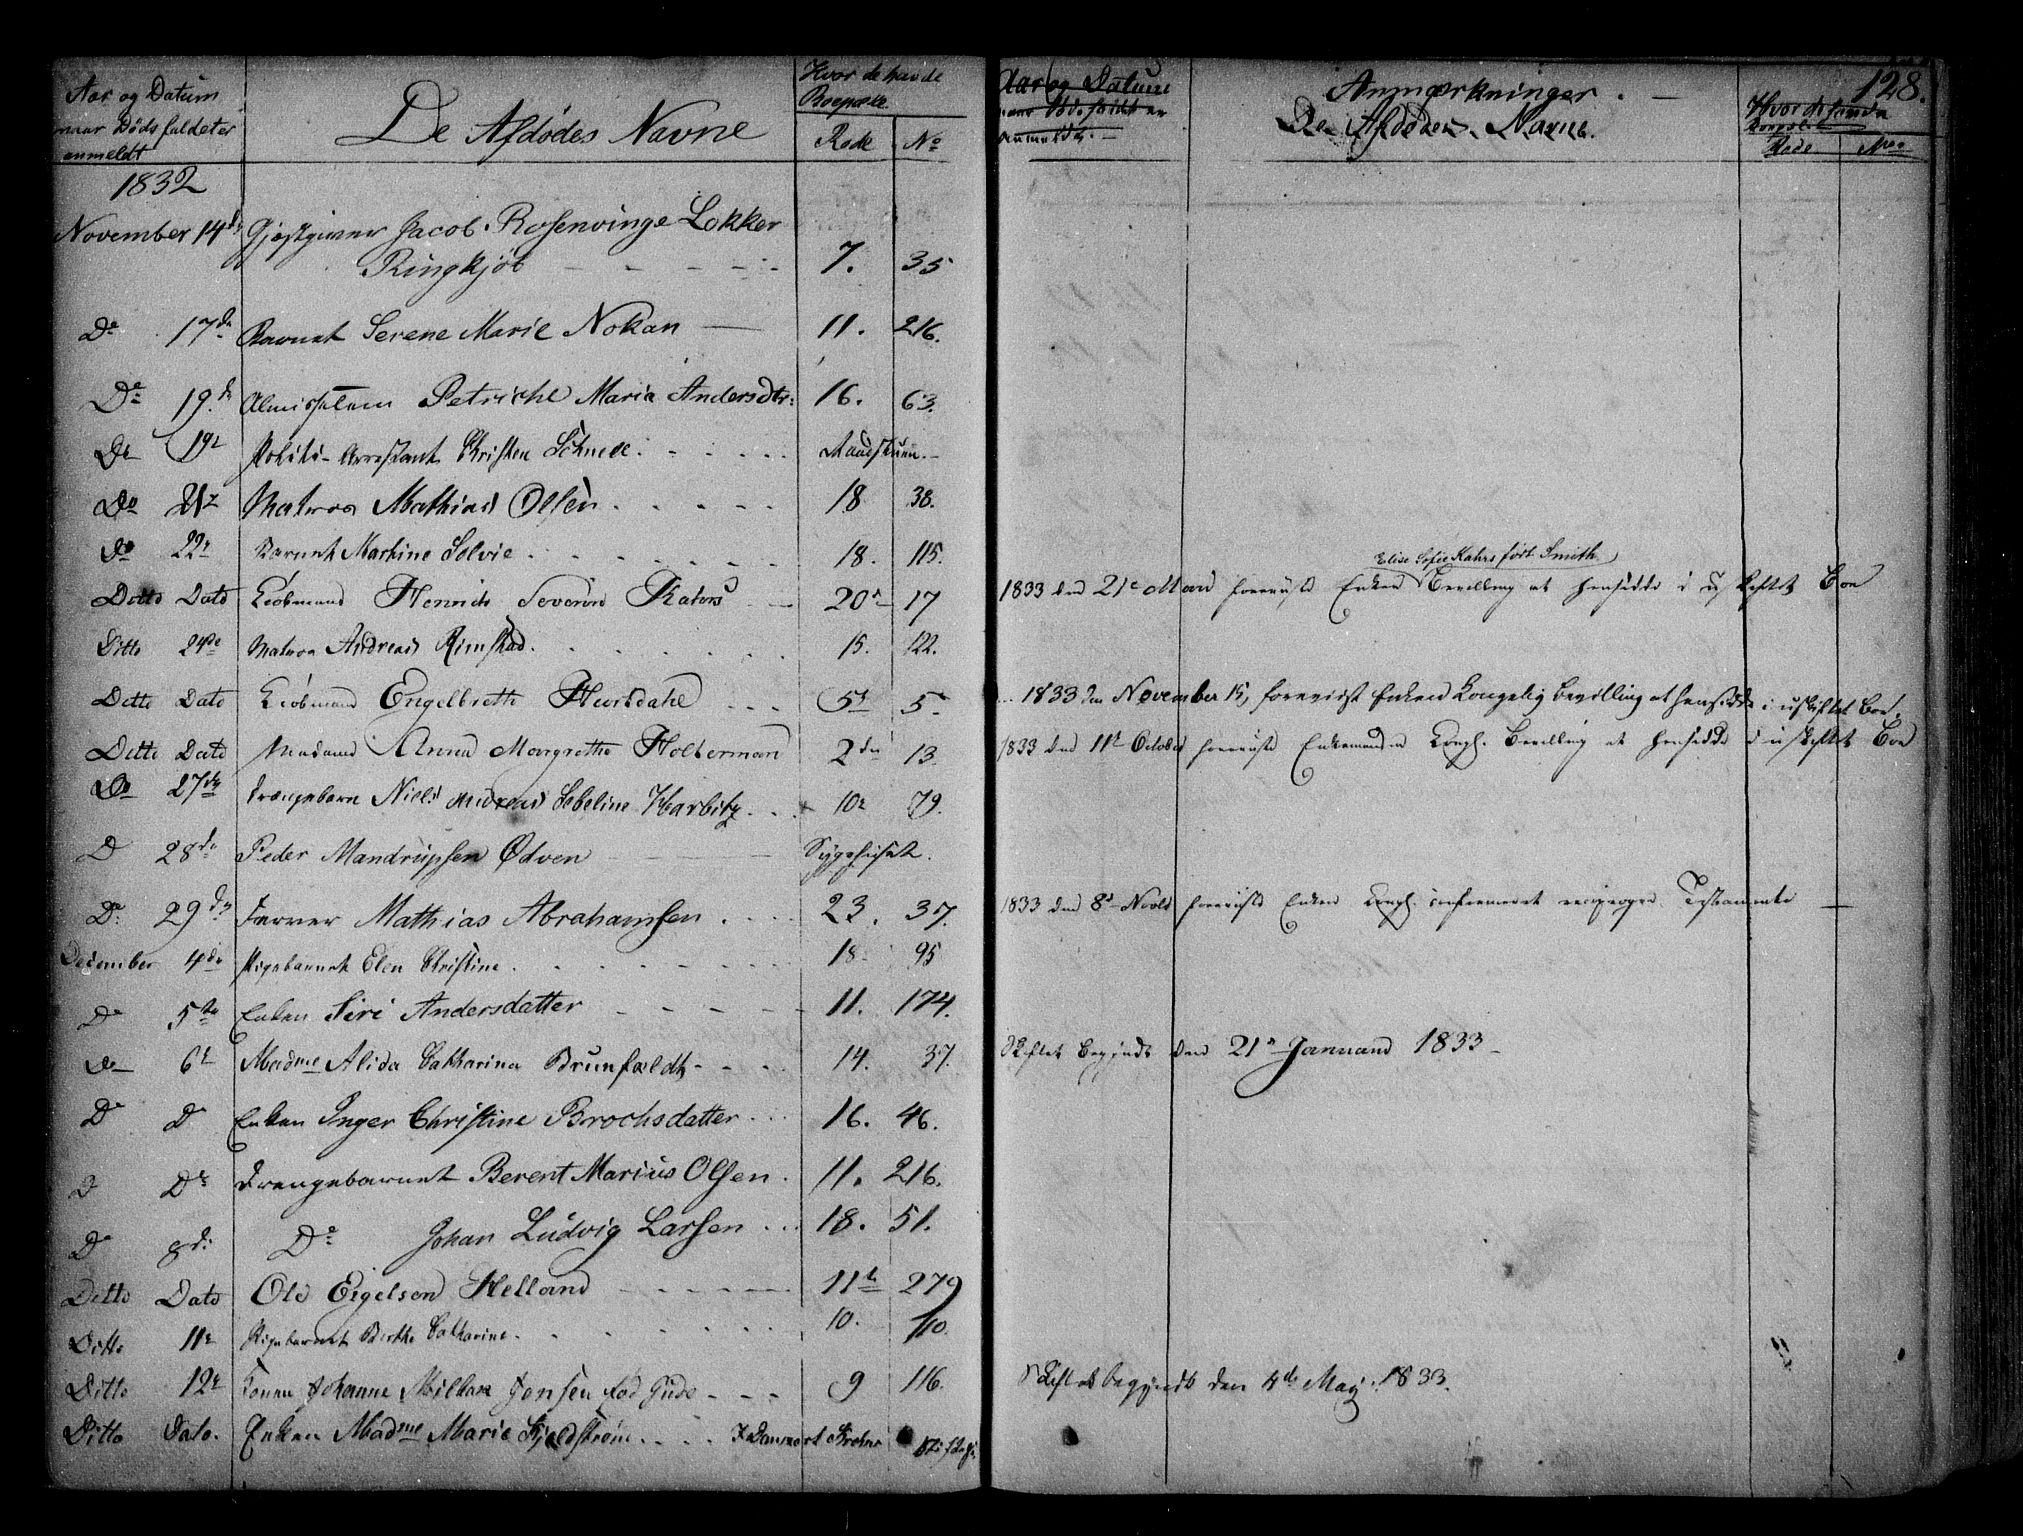 Aar og Datum
naar Dødsfaldet er
anmeldt
De Afdødes Navne
Hvor de havde
Boepæle
Rode No
1832
November 14de Gjæstgiver Jacob Rosenvinge Lekker
Ringkjøb - - - - 7. 35
Do 17de Barnet Serene Marie Nokan — 11. 216.
Do 19de Almisselem Petriche Maria Andersdtr: 16. 63.
Do 19de Politi-Arrestant Christen Schnede. - - - Raadstuen.
Do 21de Matros Mathias Olsen. - - - - 18 38.
Do 22de Barnet Martine Solvie. - - - 18. 115.
Ditto Dato Kiöbmand Henrich Severin Kahrs - - 20de 17
Ditto 24de Matros Andreas Rimstad. - - - - 15. 122.
Ditto Dato Kiöbmand Engelbreth Huusdahl - - - 5te 5
Ditto Dato Madame Anna Margrethe Holterman 2den 13.
Do 27de Drængebarn Niels Andreas Sebeline Harbitz. - - 10de 79.
D 28de Peder Mandrupsen Ødven — Sygehuset.
Do 29de Farver Mathias Abrahamsen. - - 23. 37.
December 4de Pigebarnet Elen Christine. - - - - 18. 95
Do 5te Enken Siri Andersdatter - - - - 11. 174.
Do 6te Madme Alida Catharina Brunfeldt - - - 14. 37.
Do D Enken Inger Christine Brochsdatter. - - 16. 46.
D Do Drengebarnet Berent Marius Olsen. 11. 216.
Do 8de Do Johan Ludvig Larsen - - - 18. 51.
Ditto Dato Ole Eigelsen Helland - - - - 11te 279
Ditto 11te Pigebarnet Birthe Catharine. - - - - 10. 110.
Ditto 12te Konen Johanne Jensen fød Gude - - - 9 116.
Ditto Dato. Enken Madme Marie Fjeldstrøm. - - - I Danmark
128.
Aar og Datum
naar Dödsfaldet er
anmeldt. —
Anmærkninger. —
De Afdödes Navne.
Hvor de havde
Boepæle
Rode No
Elise Sofie Kahrs født Smith
1833 den 21de Marti foreviiste Enken Bevilling at hensidde i uskiftet Boe
1833 den November 15, foreviist Enken Kongelig Bevilling at hensidde i uskiftet Boe.
1833 den 11te October foreviiste Enkemanden Kongl. Bevilling at hensidde i uskiftet Boe
1833 den 8de Novbr foreviiste Enken Kongl. confirmeret reciproqve Testamente —
Skiftet begyndt den 21de Januari 1833 —
Skiftet begyndt den 4de May 1833.